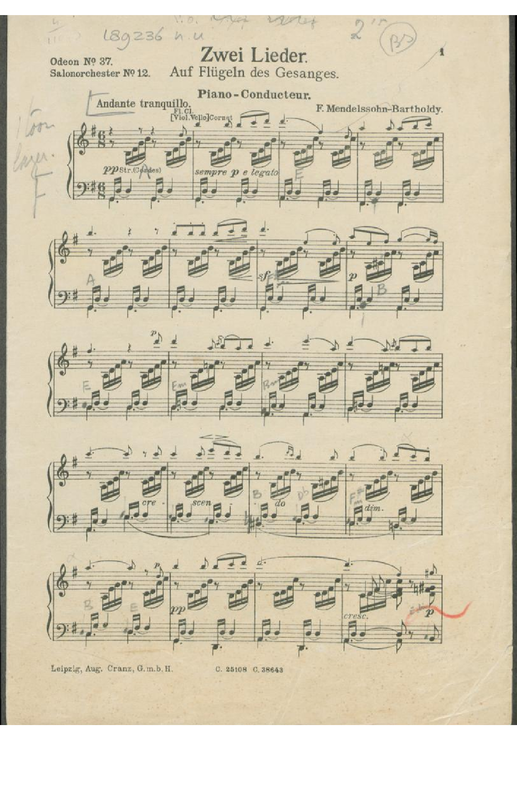 L89236 n.u.
2'15
Odeon Nº 37.
Zwei Lieder.
1
Salonorchester Nº 12.
Auf Flügeln des Gesanges.
Piano-Conducteur.
Andante tranquillo.
F. Mendelssohn-Bartholdy.
Fl. Cl.
[Viol. Vello] Corni
1 toon
lager.
F
pp Str. (Cordes)
sempre p e legato
E
A
sf
p
B
p
E
Em
cre - scen - do
dim.
B
B
E
pp
cresc.
p
Leipzig, Aug. Cranz, G.m.b.H.
C. 25108 C. 38643